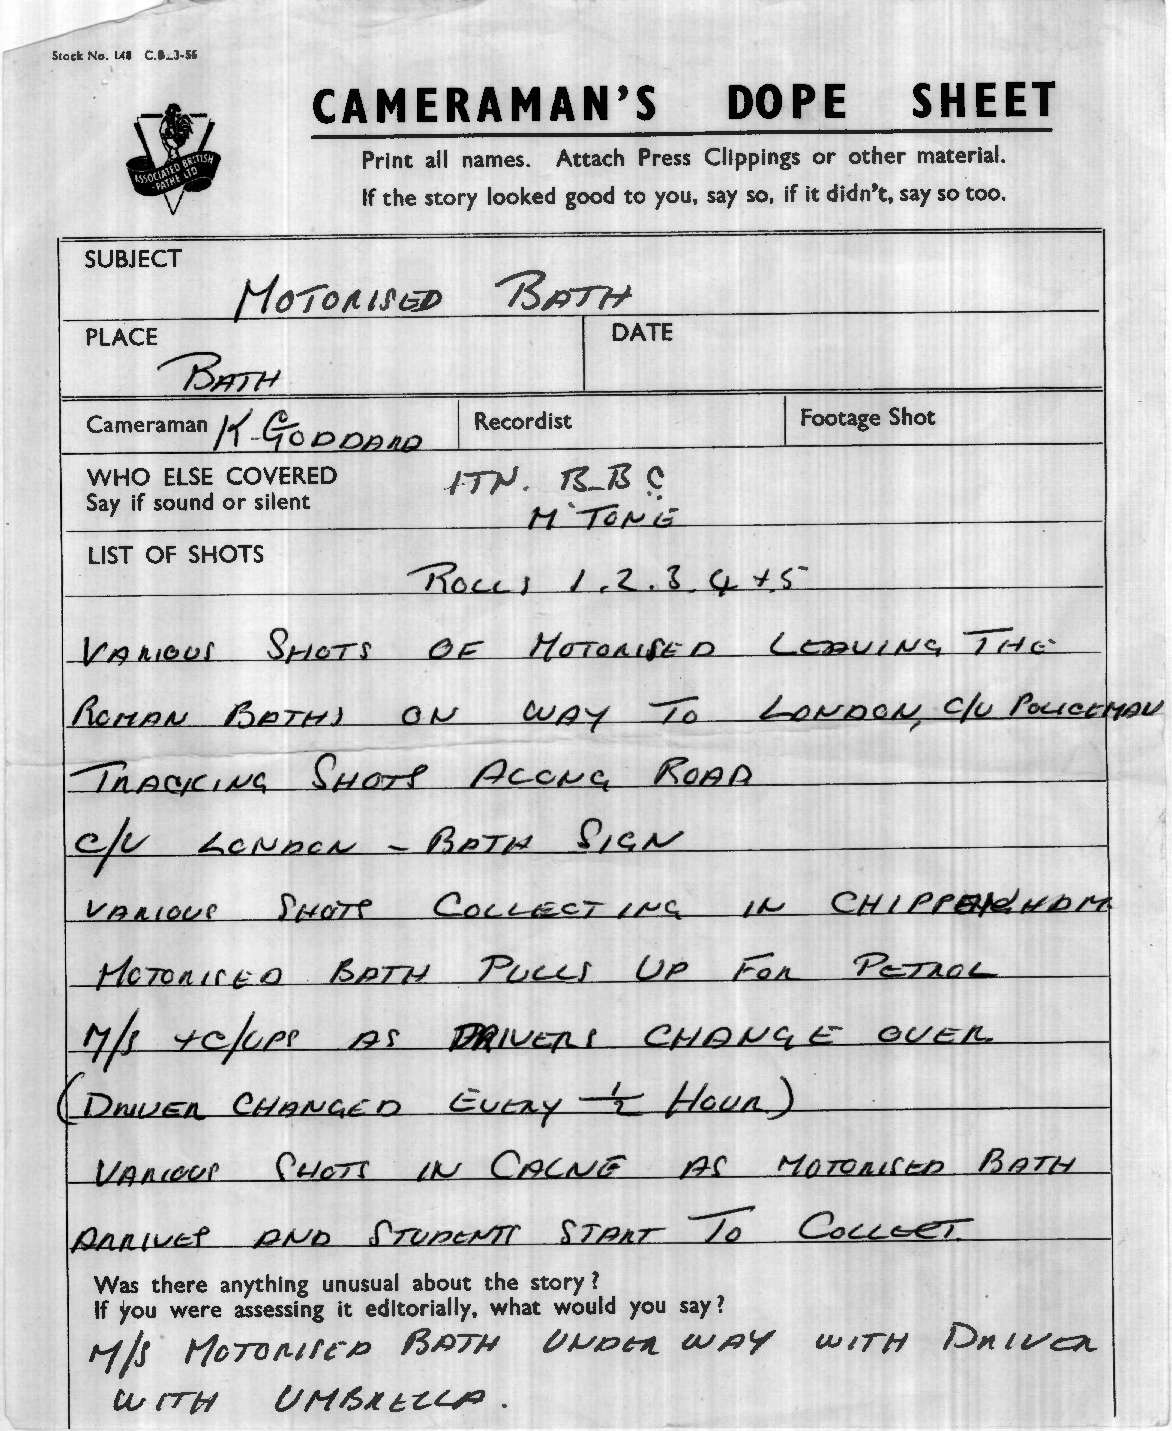 Stock No. 148 C.B_3-56
ASSOCIATED BRITISH
-PATHE LTD
CAMERAMAN'S DOPE SHEET
Print all names. Attach Press Clippings or other material.
If the story looked good to you, say so, if it didn't, say so too.
SUBJECT
MOTORISED BATH
PLACE
DATE
BATH
Cameraman K. GODDARD
Recordist
Footage Shot
WHO ELSE COVERED
Say if sound or silent
ITN. B-B C
M'TONE
LIST OF SHOTS
ROLLS 1.2.3.4 + 5
VARIOUS SHOTS OF MOTORISED LEAVING THE
ROMAN BATHS ON WAY TO LONDON, C/U POLICEMAN
TRACKING SHOTS ALONG ROAD
C/U LONDON - BATH SIGN
VARIOUS SHOTS COLLECTING IN CHIPPENHAM
MOTORISED BATH PULLS UP FOR PETROL
M/S + C/UPS AS DRIVERS CHANGE OVER.
(DRIVER CHANGED EVERY 1/2 HOUR)
VARIOUS SHOTS IN CALNE AS MOTORISED BATH
ARRIVES AND STUDENTS START TO COLLECT.
Was there anything unusual about the story?
If you were assessing it editorially, what would you say?
M/S MOTORISED BATH UNDER WAY WITH DRIVER
WITH UMBRELLA.